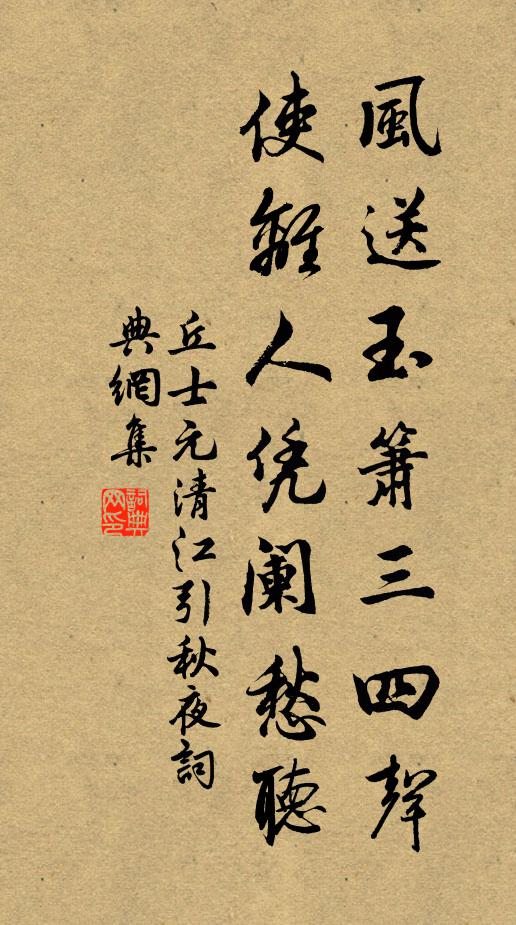 風送玉簫三四聲
使離人凭阑愁聽
丘士元清江引秋夜詞
典網集
詞典網印